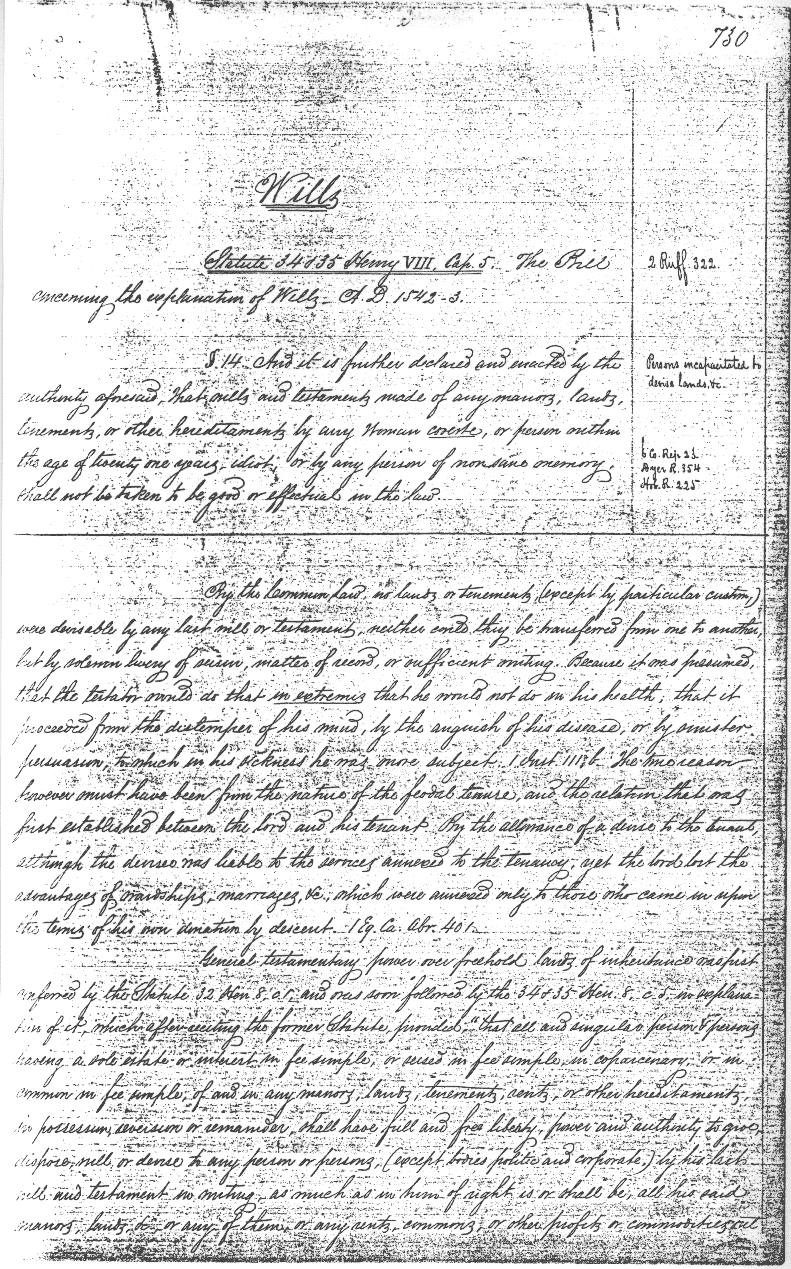 730
Wills
Statute 34 & 35 Henry VIII, Cap. 5. The Bill
concerning the explanation of Wills - A.D. 1542-3.
2 Ruff. 322.
§. 14. And it is further declared and enacted by the
authority aforesaid, That wills and testaments made of any manors, lands,
tenements, or other hereditaments by any Woman coverte, or person within
the age of twenty one years, idiot, or by any person of nonsane memory,
shall not be taken to be good or effectual in the law.
Persons incapacitated to
devise lands, &c.
6 Co. Rep. 23
Dyer R. 354
Hob. R. 225
By the Common Law, no lands or tenements, (except by particular custom,)
were devisable by any last will or testament, neither could they be transferred from one to another,
but by solemn livery of seisin, matter of record, or sufficient writing. Because it was presumed,
that the testator would do that in extremis that he would not do in his health; that it
proceeded from the distemper of his mind, by the anguish of his disease, or by sinister
persuasion, to which in his sickness he was more subject. 1 Inst. 111, b. The true reason
however must have been from the nature of the feodal tenure, and the relation that was
first established between the lord and his tenant. By the allowance of a devise to the tenant,
although the devisee was liable to the services annexed to the tenancy; yet the lord lost the
advantages of wardships, marriages, &c., which were annexed only to those who came in upon
the terms of his own donation by descent. 1 Eq. Ca. Abr. 401.
General testamentary power over freehold lands of inheritance was first
conferred by the Statute 32 Hen. 8, c. 1, and was soon followed by the 34 & 35 Hen. 8, c. 5, in explana-
tion of it, which after reciting the former Statute, provided, "that all and singular person & persons
having a sole estate or interest in fee simple, or seised in fee simple, in coparcenary, or in
common in fee simple, of and in any manors, lands, tenements, rents, or other hereditaments,
in possession, reversion or remainder, shall have full and free liberty, power and authority to give,
dispose, will, or devise to any person or persons, (except bodies politic and corporate,) by his last
will and testament in writing, as much as in him of right is or shall be, all his said
manors, lands, &c. or any of them, or any rents, commons, or other profits or commodities, out